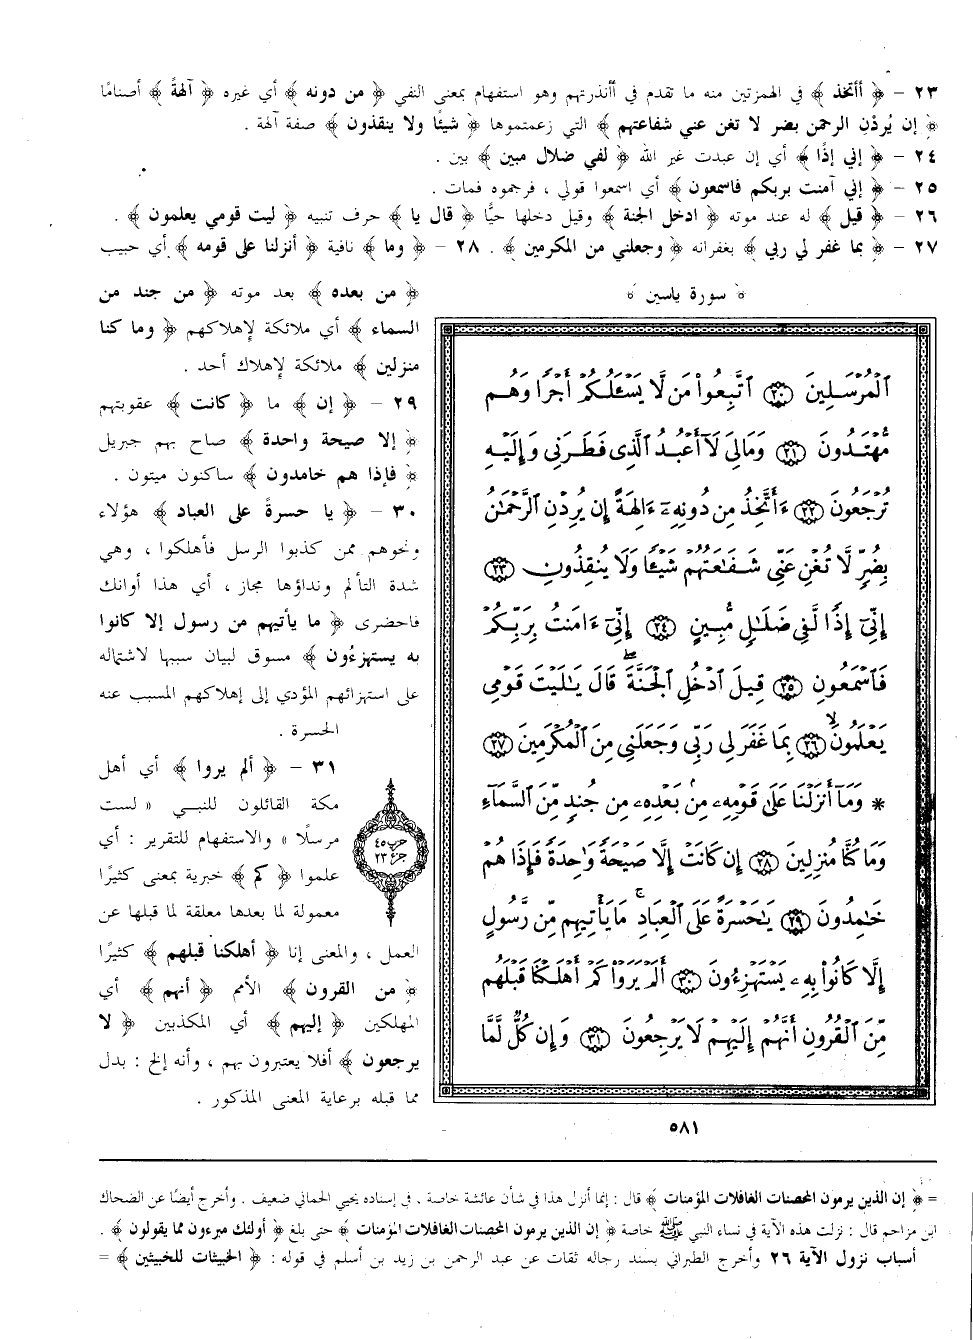 ٢٣ – ﴿ أأتخذ ﴾ في الهمزتين منه ما تقدم في أأنذرتهم وهو استفهام بمعنى النفي ﴿ من دونه ﴾ أي غيره ﴿ آلهةً ﴾ أصنامًا
﴿ إن يُردْنِ الرحمن بضر لا تغن عني شفاعتهم ﴾ التي زعمتموها ﴿ شيئًا ولا ينقذون ﴾ صفة آلهة .
٢٤ – ﴿ إني إذًا ﴾ أي إن عبدت غير الله ﴿ لفي ضلال مبين ﴾ بين .
٢٥ – ﴿ إني آمنت بربكم فاسمعون ﴾ أي اسمعوا قولي ، فرجموه فمات .
٢٦ – ﴿ قيل ﴾ له عند موته ﴿ ادخل الجنة ﴾ وقيل دخلها حيًّا ﴿ قال يا ﴾ حرف تنبيه ﴿ ليت قومي يعلمون ﴾ .
٢٧ – ﴿ بما غفر لي ربي ﴾ بغفرانه ﴿ وجعلني من المكرمين ﴾ . ٢٨ – ﴿ وما ﴾ نافية ﴿ أنزلنا على قومه ﴾ أي حبيب
﴿ من بعده ﴾ بعد موته ﴿ من جند من
السماء ﴾ أي ملائكة لإهلاكهم ﴿ وما كنا
منزلين ﴾ ملائكة لإهلاك أحد .
٢٩ – ﴿ إن ﴾ ما ﴿ كانت ﴾ عقوبتهم
﴿ إلا صيحة واحدة ﴾ صاح بهم جبريل
﴿ فإذا هم خامدون ﴾ ساكنون ميتون .
٣٠ – ﴿ يا حسرةً على العباد ﴾ هؤلاء
ونحوهم ممن كذبوا الرسل فأهلكوا ، وهي
شدة التألم ونداؤها مجاز ، أي هذا أوانك
فاحضرى ﴿ ما يأتيهم من رسول إلا كانوا
به يستهزءُون ﴾ مسوق لبيان سببها لاشتماله
على استهزائهم المؤدي إلى إهلاكهم المسبب عنه
الحسرة .
٣١ – ﴿ ألم يروا ﴾ أي أهل
مكة القائلون للنبي « لست
مرسلًا » والاستفهام للتقرير : أي
علموا ﴿ كم ﴾ خبرية بمعنى كثيرًا
معمولة لما بعدها معلقة لما قبلها عن
العمل ، والمعنى إنا ﴿ أهلكنا قبلهم ﴾ كثيرًا
﴿ من القرون ﴾ الأمم ﴿ أنهم ﴾ أي
المهلكين ﴿ إليهم ﴾ أي المكذبين ﴿ لا
يرجعون ﴾ أفلا يعتبرون بهم ، وأنه إلخ : بدل
مما قبله برعاية المعنى المذكور .
حزب ٤٥
جزء ٢٣
﴿ سورة ياسين ﴾
ٱلۡمُرۡسَلِينَ ﴿٢٠﴾ ٱتَّبِعُواْ مَن لَّا يَسۡـَٔلُكُمۡ أَجۡرٗا وَهُم
مُّهۡتَدُونَ ﴿٢١﴾ وَمَالِىَ لَآ أَعۡبُدُ ٱلَّذِى فَطَرَنِى وَإِلَيۡهِ
تُرۡجَعُونَ ﴿٢٢﴾ ءَأَتَّخِذُ مِن دُونِهِۦٓ ءَالِهَةً إِن يُرِدۡنِ ٱلرَّحۡمَٰنُ
بِضُرّٖ لَّا تُغۡنِ عَنِّى شَفَٰعَتُهُمۡ شَيۡـٔٗا وَلَا يُنقِذُونِ ﴿٢٣﴾
إِنِّىٓ إِذٗا لَّفِى ضَلَٰلٖ مُّبِينٍ ﴿٢٤﴾ إِنِّىٓ ءَامَنتُ بِرَبِّكُمۡ
فَٱسۡمَعُونِ ﴿٢٥﴾ قِيلَ ٱدۡخُلِ ٱلۡجَنَّةَۖ قَالَ يَٰلَيۡتَ قَوۡمِى
يَعۡلَمُونَ ﴿٢٦﴾ بِمَا غَفَرَ لِى رَبِّى وَجَعَلَنِى مِنَ ٱلۡمُكۡرَمِينَ ﴿٢٧﴾
* وَمَآ أَنزَلۡنَا عَلَىٰ قَوۡمِهِۦ مِنۢ بَعۡدِهِۦ مِن جُندٖ مِّنَ ٱلسَّمَآءِ
وَمَا كُنَّا مُنزِلِينَ ﴿٢٨﴾ إِن كَانَتۡ إِلَّا صَيۡحَةٗ وَٰحِدَةٗ فَإِذَا هُمۡ
خَٰمِدُونَ ﴿٢٩﴾ يَٰحَسۡرَةً عَلَى ٱلۡعِبَادِۚ مَا يَأۡتِيهِم مِّن رَّسُولٍ
إِلَّا كَانُواْ بِهِۦ يَسۡتَهۡزِءُونَ ﴿٣٠﴾ أَلَمۡ يَرَوۡاْ كَمۡ أَهۡلَكۡنَا قَبۡلَهُم
مِّنَ ٱلۡقُرُونِ أَنَّهُمۡ إِلَيۡهِمۡ لَا يَرۡجِعُونَ ﴿٣١﴾ وَإِن كُلّٞ لَّمَّا
٥٨١
= ﴿ إن الذين يرمون المحصنات الغافلات المؤمنات ﴾ قال : إنما أنزل هذا في شأن عائشة خاصة . في إسناده يحيى الحماني ضعيف . وأخرج أيضًا عن الضحاك
ابن مزاحم قال : نزلت هذه الآية في نساء النبي ﷺ خاصة ﴿ إن الذين يرمون المحصنات الغافلات المؤمنات ﴾ حتى بلغ ﴿ أولئك مبرءون مما يقولون ﴾ .
أسباب نزول الآية ٢٦ وأخرج الطبراني بسند رجاله ثقات عن عبد الرحمن بن زيد بن أسلم في قوله : ﴿ الخبيثات للخبيثين ﴾ =